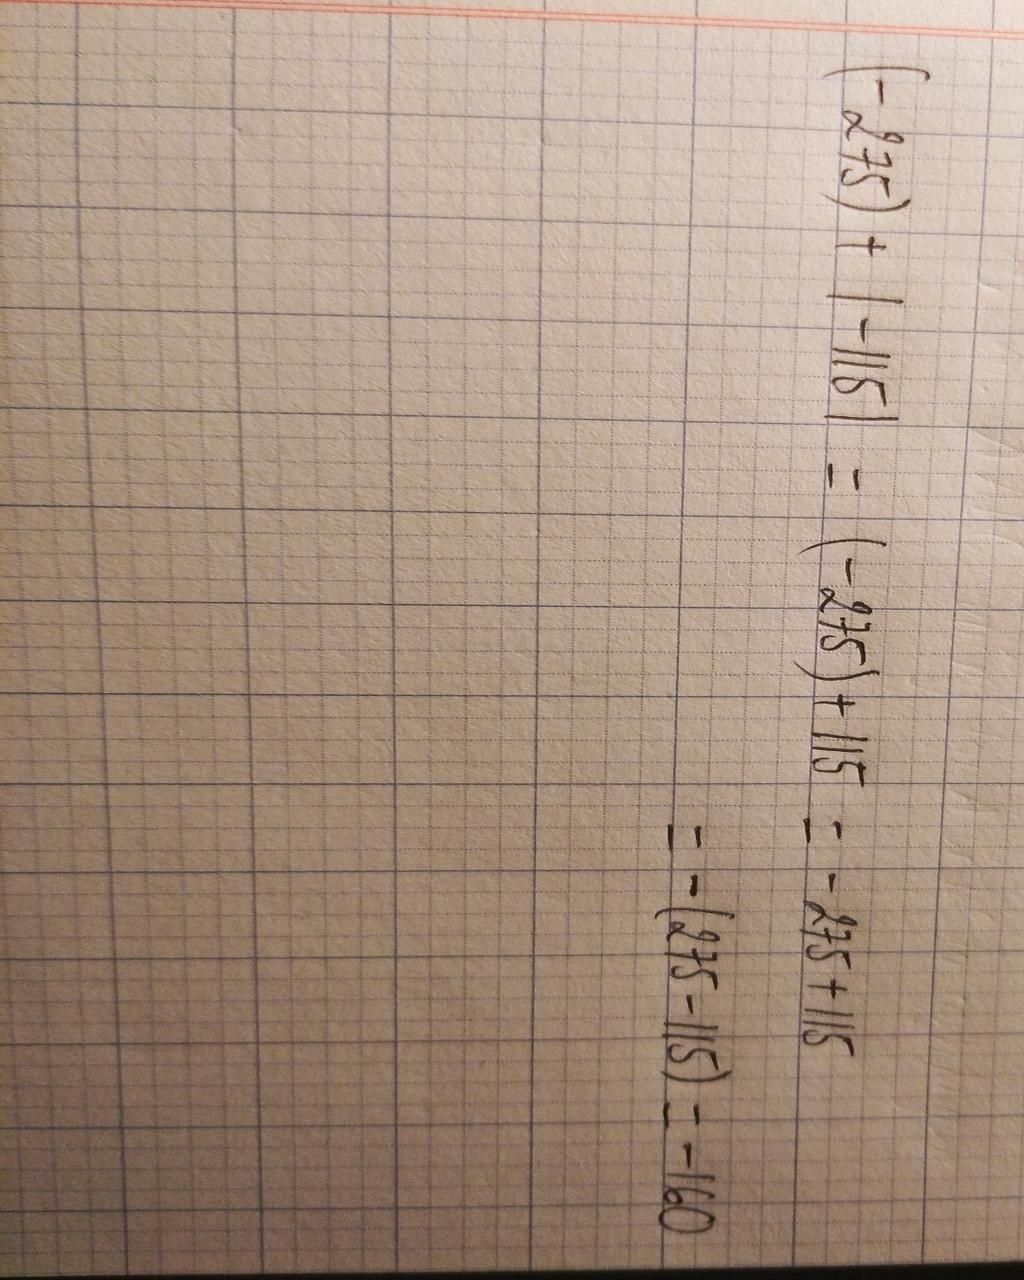 (-275) + |-115| = (-275) + 115 = -275 + 115
= -(275 - 115) = -160